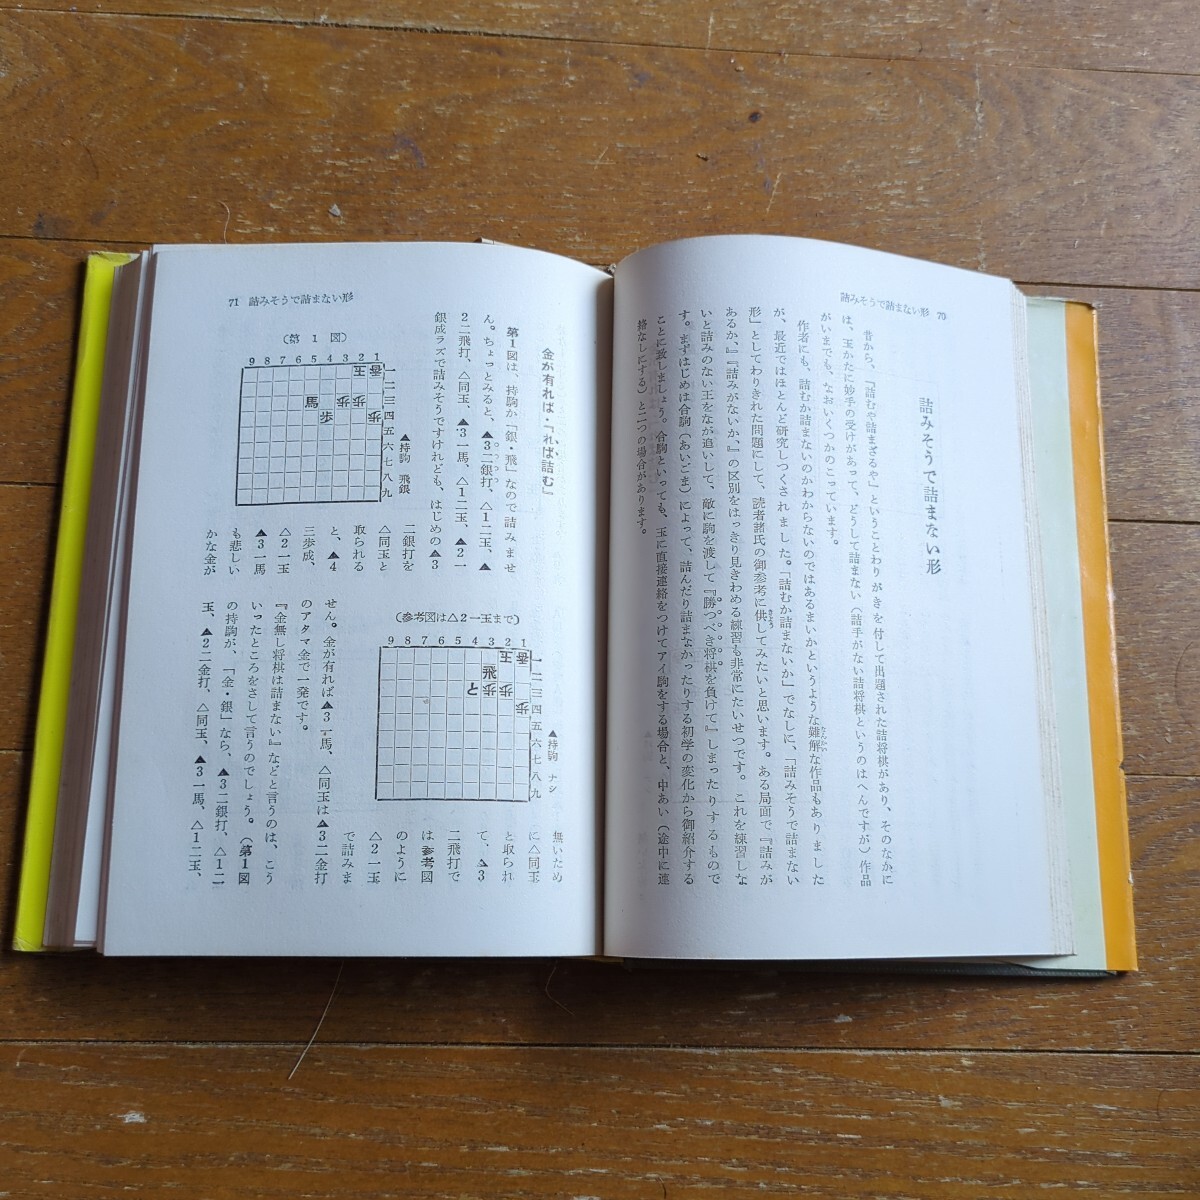 詰みそうで詰まない形 70
詰みそうで詰まない形
昔から、「詰むや詰まざるや」ということわりがきを付して出題された詰将棋があり、そのなかに
は、玉かたに妙手の受けがあって、どうして詰まない(詰手がない詰将棋というのはへんですが)作品
がいまでも、なおいくつかのこっています。
作者にも、詰むか詰まないのかわからないのではあるまいかというような難解な作品もありました
が、最近ではほとんど研究しつくされました。「詰むか詰まないか」でなしに、「詰みそうで詰まない
形」としてわりきれた問題にして、読者諸氏の御参考に供してみたいと思います。ある局面で『詰みが
あるか』『詰みがないか、』の区別をはっきり見きわめる練習も非常にたいせつです。これを練習しな
いと詰みのない王をなが追いして、敵に駒を渡して『勝つべき将棋を負けて』しまったりするもので
す。まずはじめは合駒(あいごま)によって、詰んだり詰まなかったりする初学の変化から御紹介する
ことに致しましょう。合駒といっても、玉に直接連絡をつけてアイ駒をする場合と、中あい(途中に連
絡なしにする)と二つの場合があります。
71 詰みそうで詰まない形
金が有れば・『れば詰む』
第1図は、持駒か「銀・飛」なので詰みませ
ん。ちょっとみると、▲3二銀打、△1二玉、▲
2二飛打、△同玉、▲3一馬、△1二玉、▲2一
銀成ラズで詰みそうですけれども、はじめの▲3
二銀打を
△同玉と
取られる
と、▲4
三歩成、
△2一玉
▲3一馬
も悲しい
かな金が
(第1図)
9 8 7 6 5 4 3 2 1
一二三四五六七八九
香
玉
馬
歩
歩
歩
歩
▲持駒 飛銀
無いため
に△同玉
と取られ
て、▲3
二飛打で
は参考図
のように
△2一玉
で詰みま
せん。金が有れば▲3一馬、△同玉は▲3二金打
のアタマ金で一発です。
『金無し将棋は詰まない』などと言うのは、こう
いったところをさして言うのでしょう。(第1図
の持駒が、「金・銀」なら、▲3二銀打、△1二
玉、▲2二金打、△同玉、▲3一馬、△1二玉、
(参考図は△2一玉まで)
9 8 7 6 5 4 3 2 1
一二三四五六七八九
香
玉
飛
と
歩
歩
歩
▲持駒 ナシ